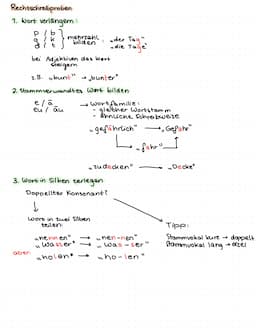 Rechtschreibproben
1. Wort verlängern:
p / b
g / k } mehrzahl → „der Tag"
d / t } bilden → „die Tage"
bei Adjektiven das Wort
steigern
z.B. „bunt" → „bunter"
2. Stammverwandtes Wort bilden
e / ä → Wortfamilie:
eu / äu - gleicher Wortstamm
- ähnliche Schreibweise
„gefährlich" → „Gefahr"
→ „fahr"
„zudecken" → „Decke"
3. Wort in Silben zerlegen
Doppelter Konsonant?
Wort in zwei Silben
teilen: Tipp:
„nennen" → „nen-nen" Stammvokal kurz → doppelt
„Wasser" → „Was-ser" Stammvokal lang →
aber: „holen" → „ho-len"